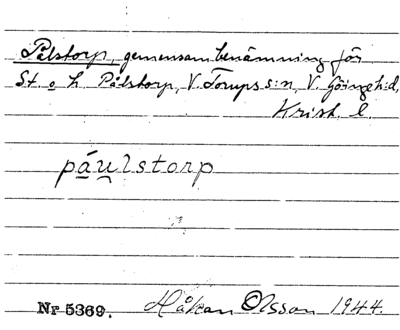 Pålstorp, gemensam benämning för
St. o. L. Pålstorp, V. Torups s:n, V. Göinge h:d,
Krist. l.
páu̯lstorp
Nr 5369. Håkan Olsson 1944.